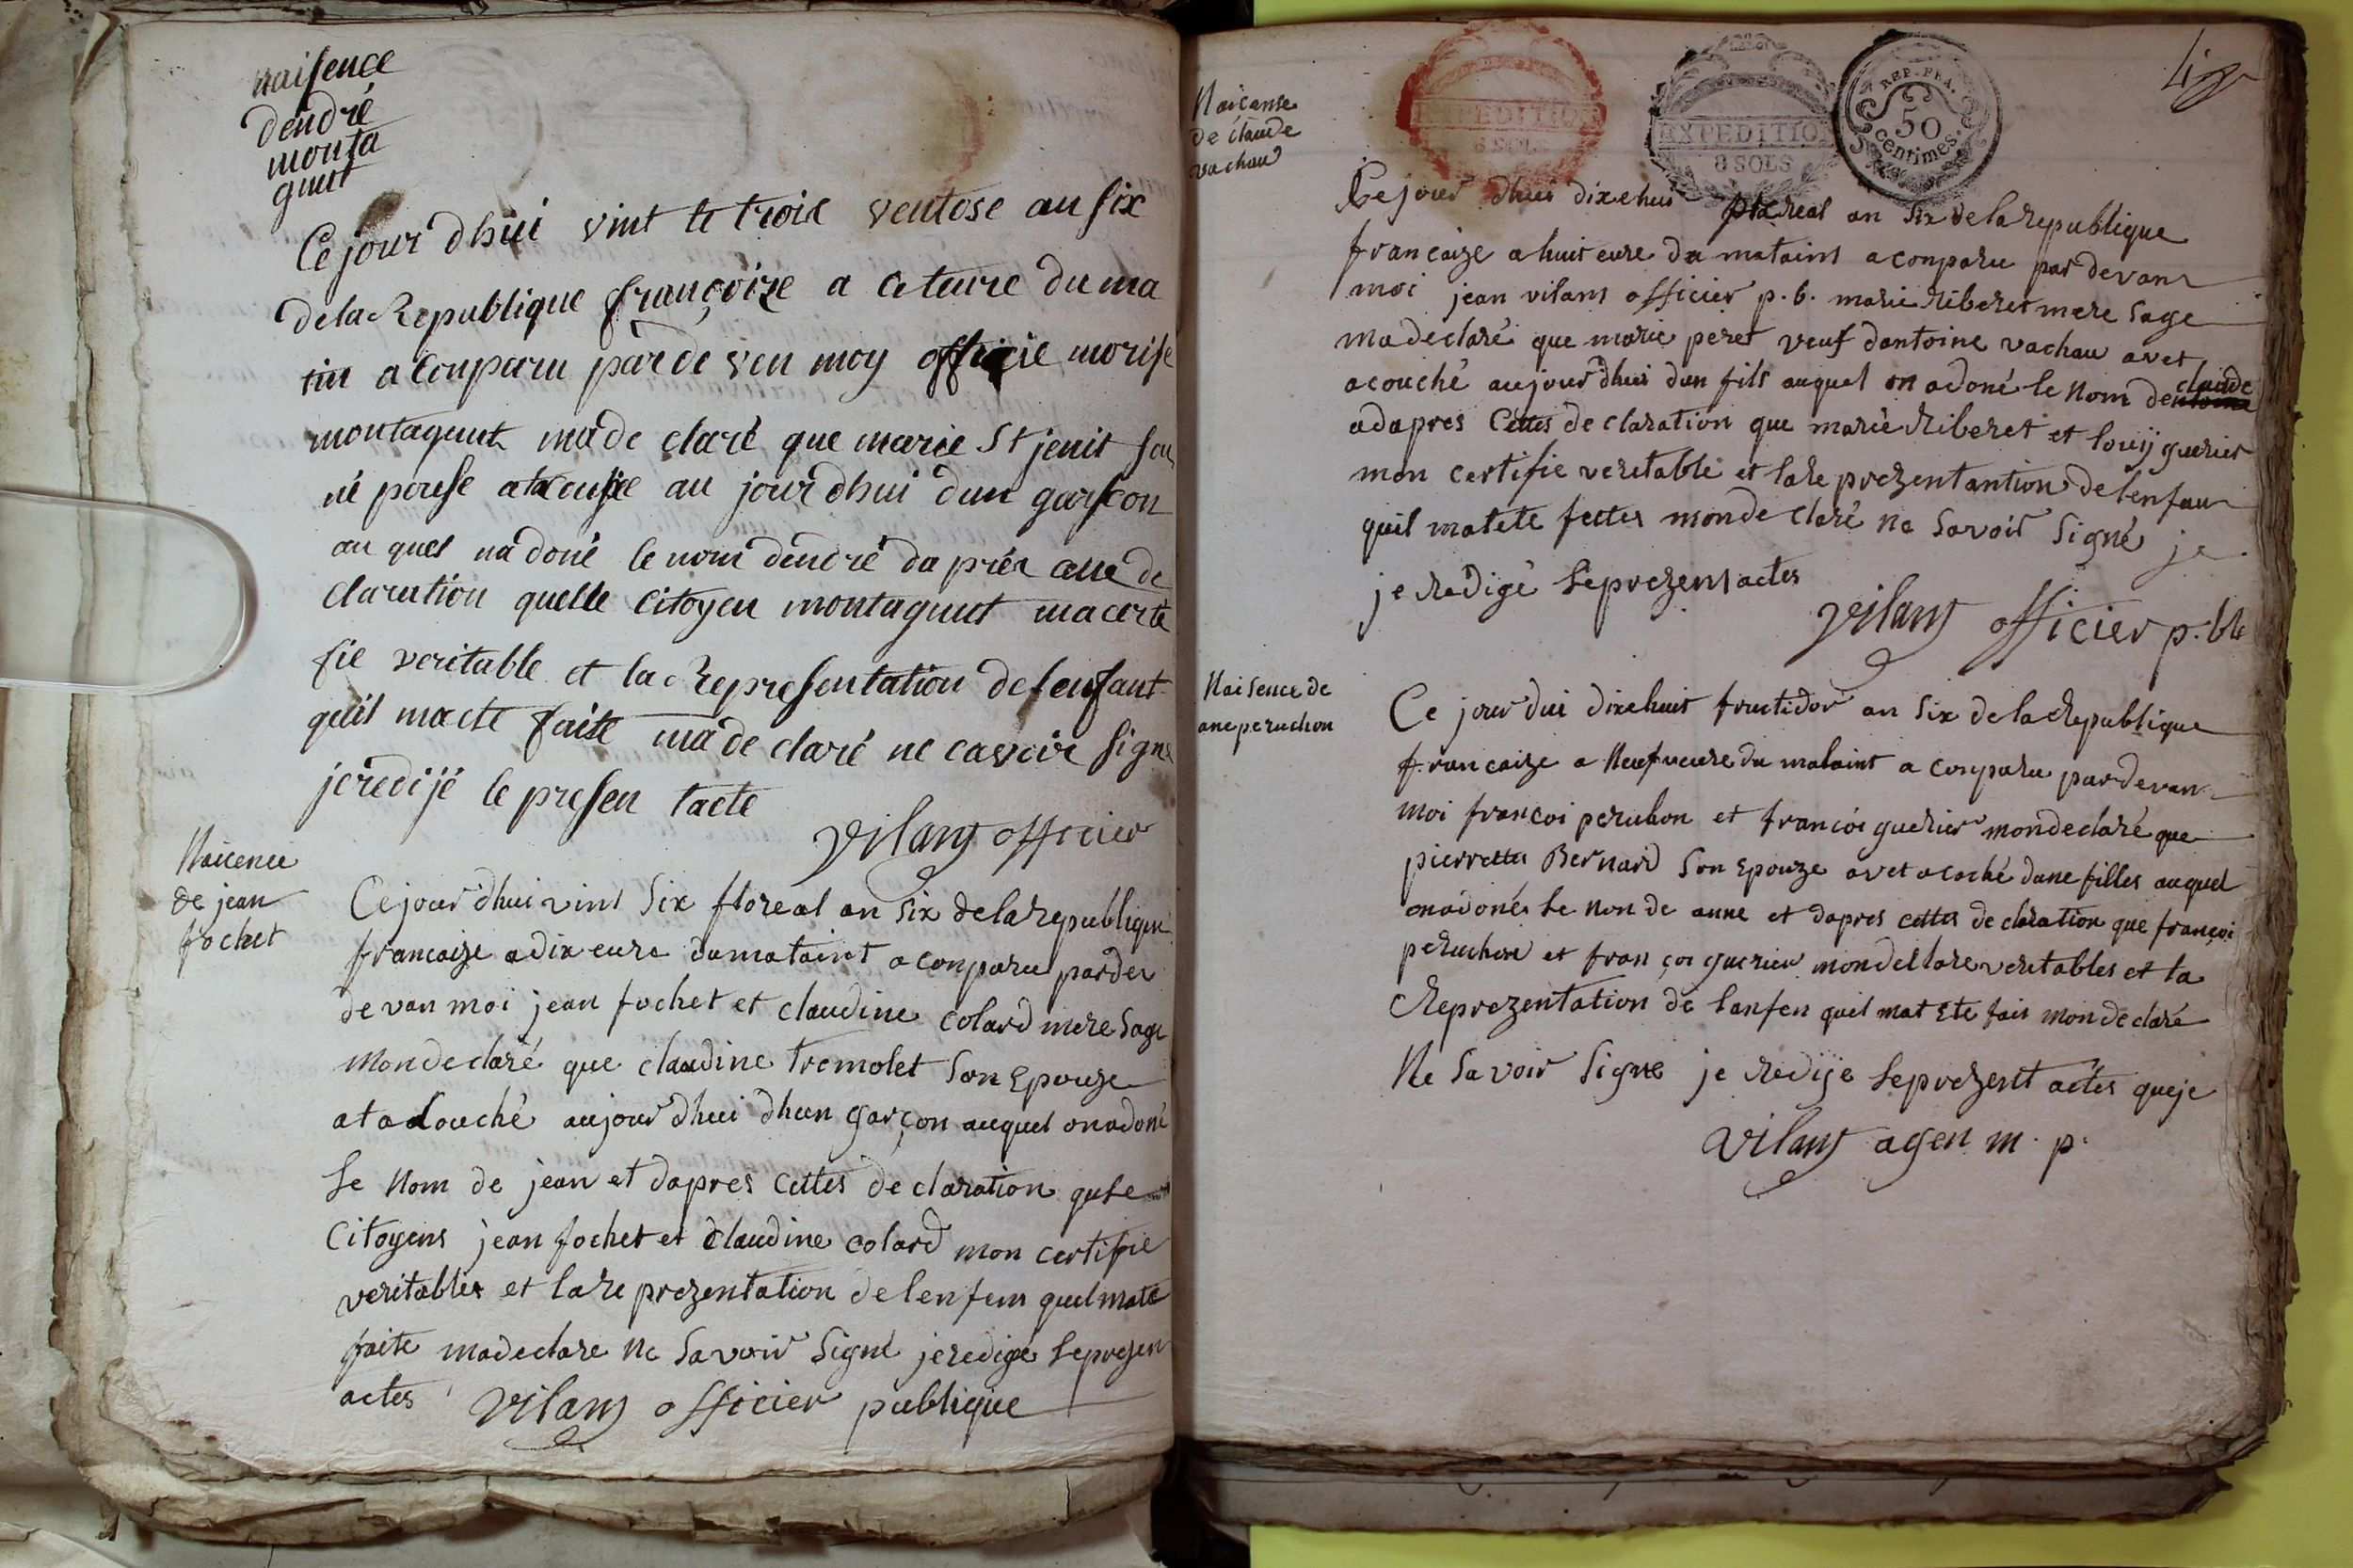 naisence
dendré
monta
gunt
Ce jour dhui vint te trois ventose an six
de la Republique françoize a ceteure du ma
tin a conparu par de ven moy officie morise
montagunt ma de claré que marie St jenit son
né pouse atacouse au jour dhui dun garscon
au quel na doné le nom dendré da prés cette de
claration quelle citoyen montagunt ma certe
fie veritable et la Representation de lenfant
quil macte faite ma de claré ne casvoir signe
je redijé le presen tacte
vilans officier
Naicence
de jean
fochet
Ce jour dhui vint six floreal an six de la republique
francaize a dix eure du mataint a conparu parder
de van moi jean fochet et claudine colard mere sage
mon declaré que claudine tremolet son epouze
at acouché aujour dhui dhun garçon auquel on a doné
le nom de jean et dapres cettes de claration que le
citoyens jean fochet et claudine colard mon certifie
veritables et la re prezentation de lenfens quel mate
faite ma declare ne savoir signé je redige le prezen
actes vilans officier publique
EXPEDITION
8 SOLS
EXPEDITION
8 SOLS
REP. FRA.
50
centimes.
Naicanse
de claude
vachau
Ce jour dhui dixehui floreal an six de la republique
francaize a huit eure du mataint a conparu par devan
moi jean vilans officier p. b. marie riberet mere sage
ma declaré que marie peret veuf dantoine vachau avet
acouché aujour dhui dun fils auquel on a doné le nom de claude
a dapres cettes de claration que marie riberet et louij guerier
mon certifie veritable et la re prezentantion de lenfan
quil matete fettes mon de claré ne savoir signé je
je redigé le prezens actes
vilans officier p. ble
Naisence de
ane peruchon
Ce jour dui dixehuit fructidor an six de la Republique
francaize a neuf veure du mataint a conparu par devan
moi françoi peruhon et françoi guerier mon declaré que
pierrettes Bernard son epouze avet acoché dune filles auquel
on a donés le non de anne et dapres cettes de claration que françoi
peruchon et fran çoi guerier mon dellare veritables et la
Reprezentation de lanfen quil mat ete fair mon de claré
Ne savoir signe je redije le prezentt actes que je
vilans agen m. p.